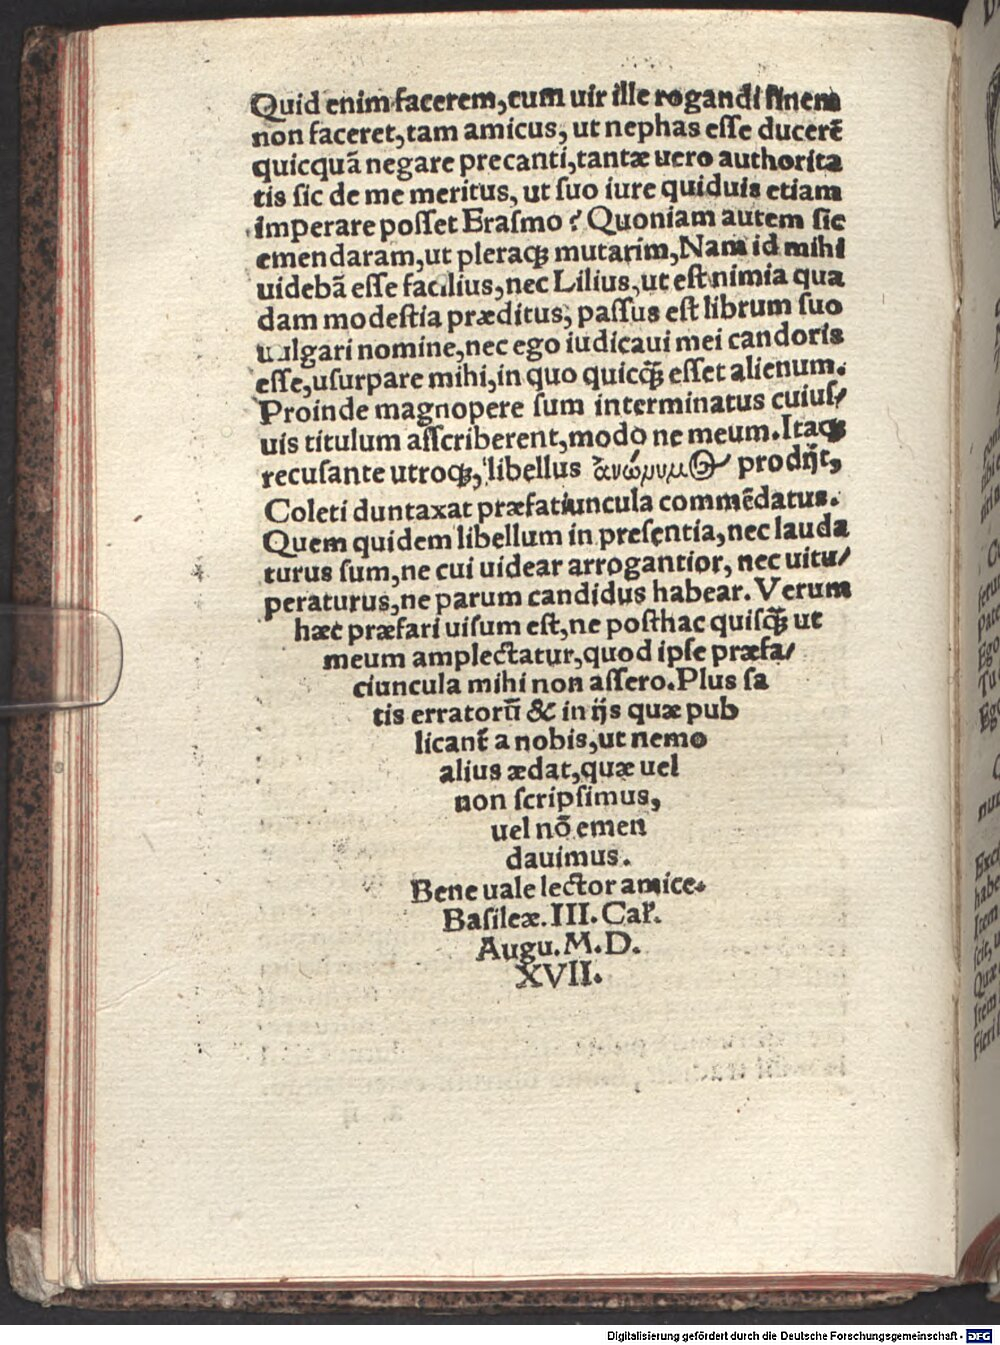 Quid enim facerem, cum uir ille rogandi finem
non faceret, tam amicus, ut nephas esse ducerẽ
quicquã negare precanti, tantæ uero authorita
tis sic de me meritus, ut suo iure quiduis etiam
imperare posset Erasmo? Quoniam autem sic
emendaram, ut pleraq; mutarim, Nam id mihi
uidebã esse facilius, nec Lilius, ut est nimia qua
dam modestia præditus, passus est librum suo
uulgari nomine, nec ego iudicaui mei candoris
esse, usurpare mihi, in quo quicq̃ esset alienum.
Proinde magnopere sum interminatus cuius/
uis titulum asscriberent, modo ne meum. Itaq;
recusante utroq;, libellus ἀνώμυμος prodijt,
Coleti duntaxat præfatiuncula commẽdatus.
Quem quidem libellum in presentia, nec lauda
turus sum, ne cui uidear arrogantior, nec uitu/
peraturus, ne parum candidus habear. Verum
hæc præfari uisum est, ne posthac quisq̃ ut
meum amplectatur, quod ipse præfa/
ciuncula mihi non assero. Plus sa
tis erratorũ & in ijs quæ pub
licant̃ a nobis, ut nemo
alius ædat, quæ uel
non scripsimus,
uel nõ emen
dauimus.
Bene uale lector amice.
Basileæ. III. Cal̃.
Augu. M. D.
XVII.
Digitalisierung gefördert durch die Deutsche Forschungsgemeinschaft - DFG